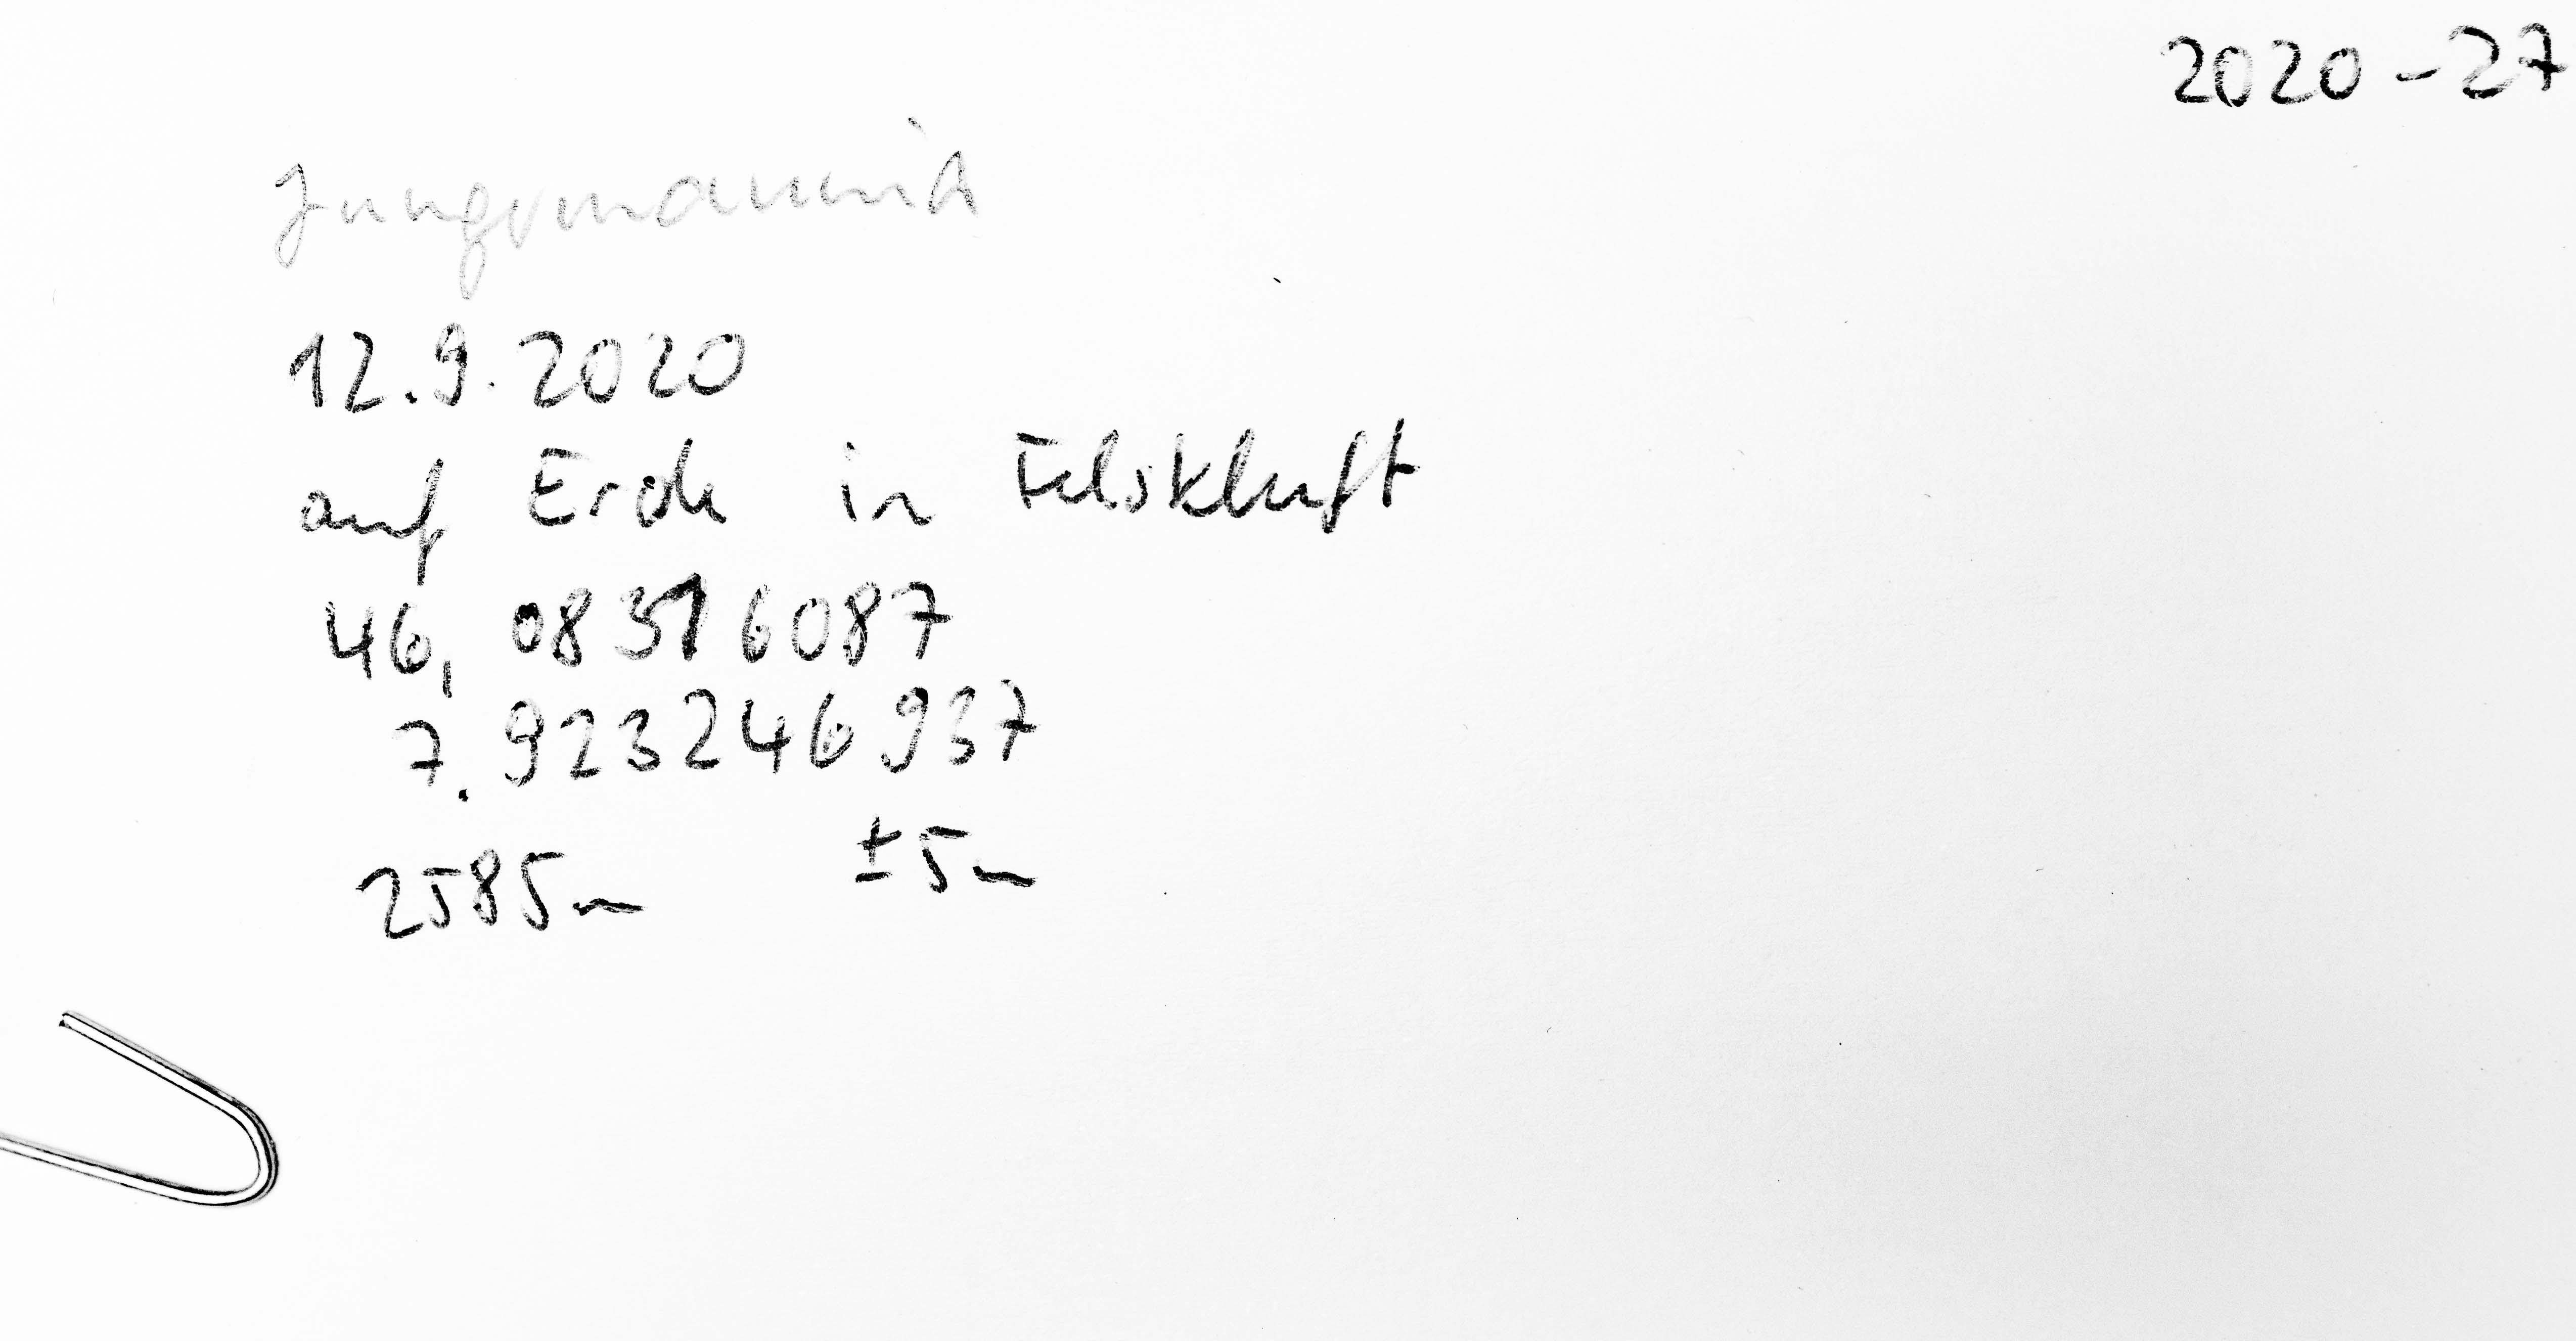 2020-27
Jungermannia
12.9.2020
auf Erde in Felskluft
46, 08316087
7.923246937
±5m
2585m